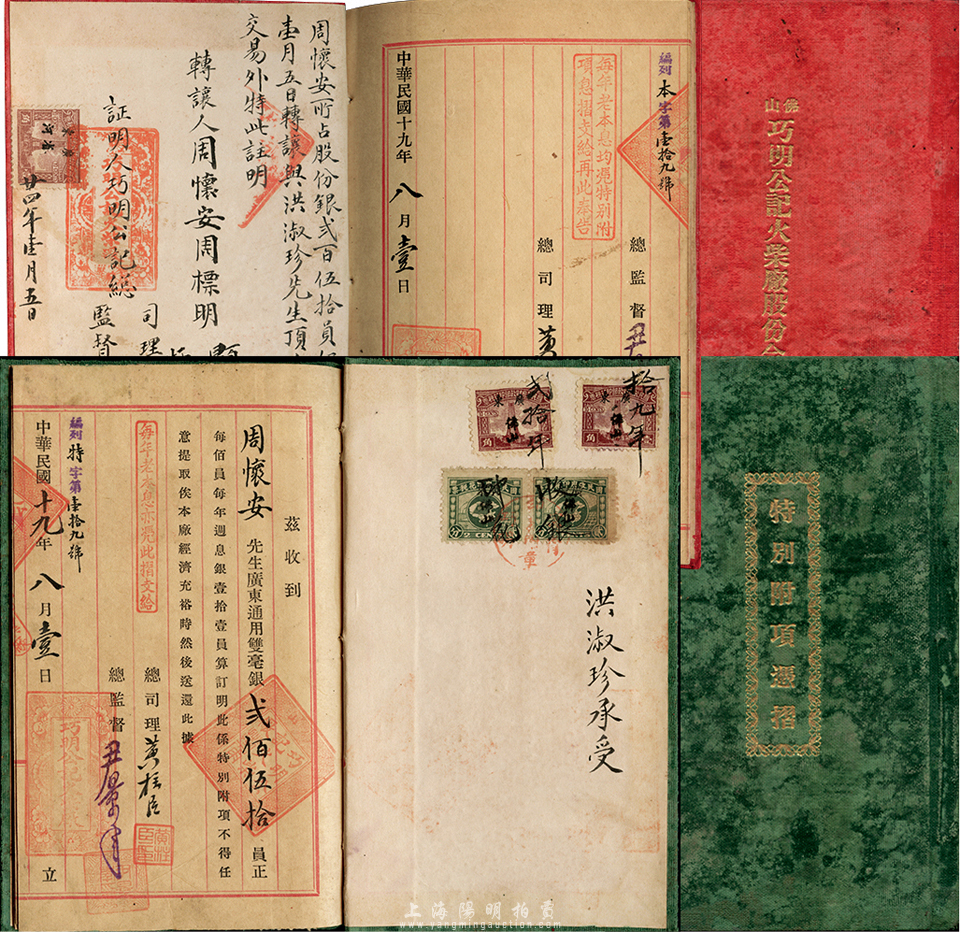 周懷安所占股份銀弍百伍拾員
壹月五日轉讓與洪淑珍先生頂
交易外特此註明
轉讓人周懷安周標明
証明人巧明公記總
司理
監督
廿四年壹月五日
編列本字第壹拾九號
每年老本息均憑特別附
項息摺支給再此奉告
總監督
總司理黃
中華民國十九年八月壹日
佛山
巧明公記火柴廠股份
茲收到
周懷安先生廣東通用雙毫銀弍佰伍拾員正
每佰員每年週息銀壹拾壹員算訂明此係特別附項不得任
意提取俟本廠經濟充裕時然後送還此據
總司理黃
總監督
每年老本息亦憑此摺支給
編列特字第壹拾九號
中華民國十九年八月壹日
立
巧明公記
拾九年
弍拾年
廣東
佛山
角
洪淑珍承受
特別附項憑摺
上海陽明拍賣
www.yangmingauction.com